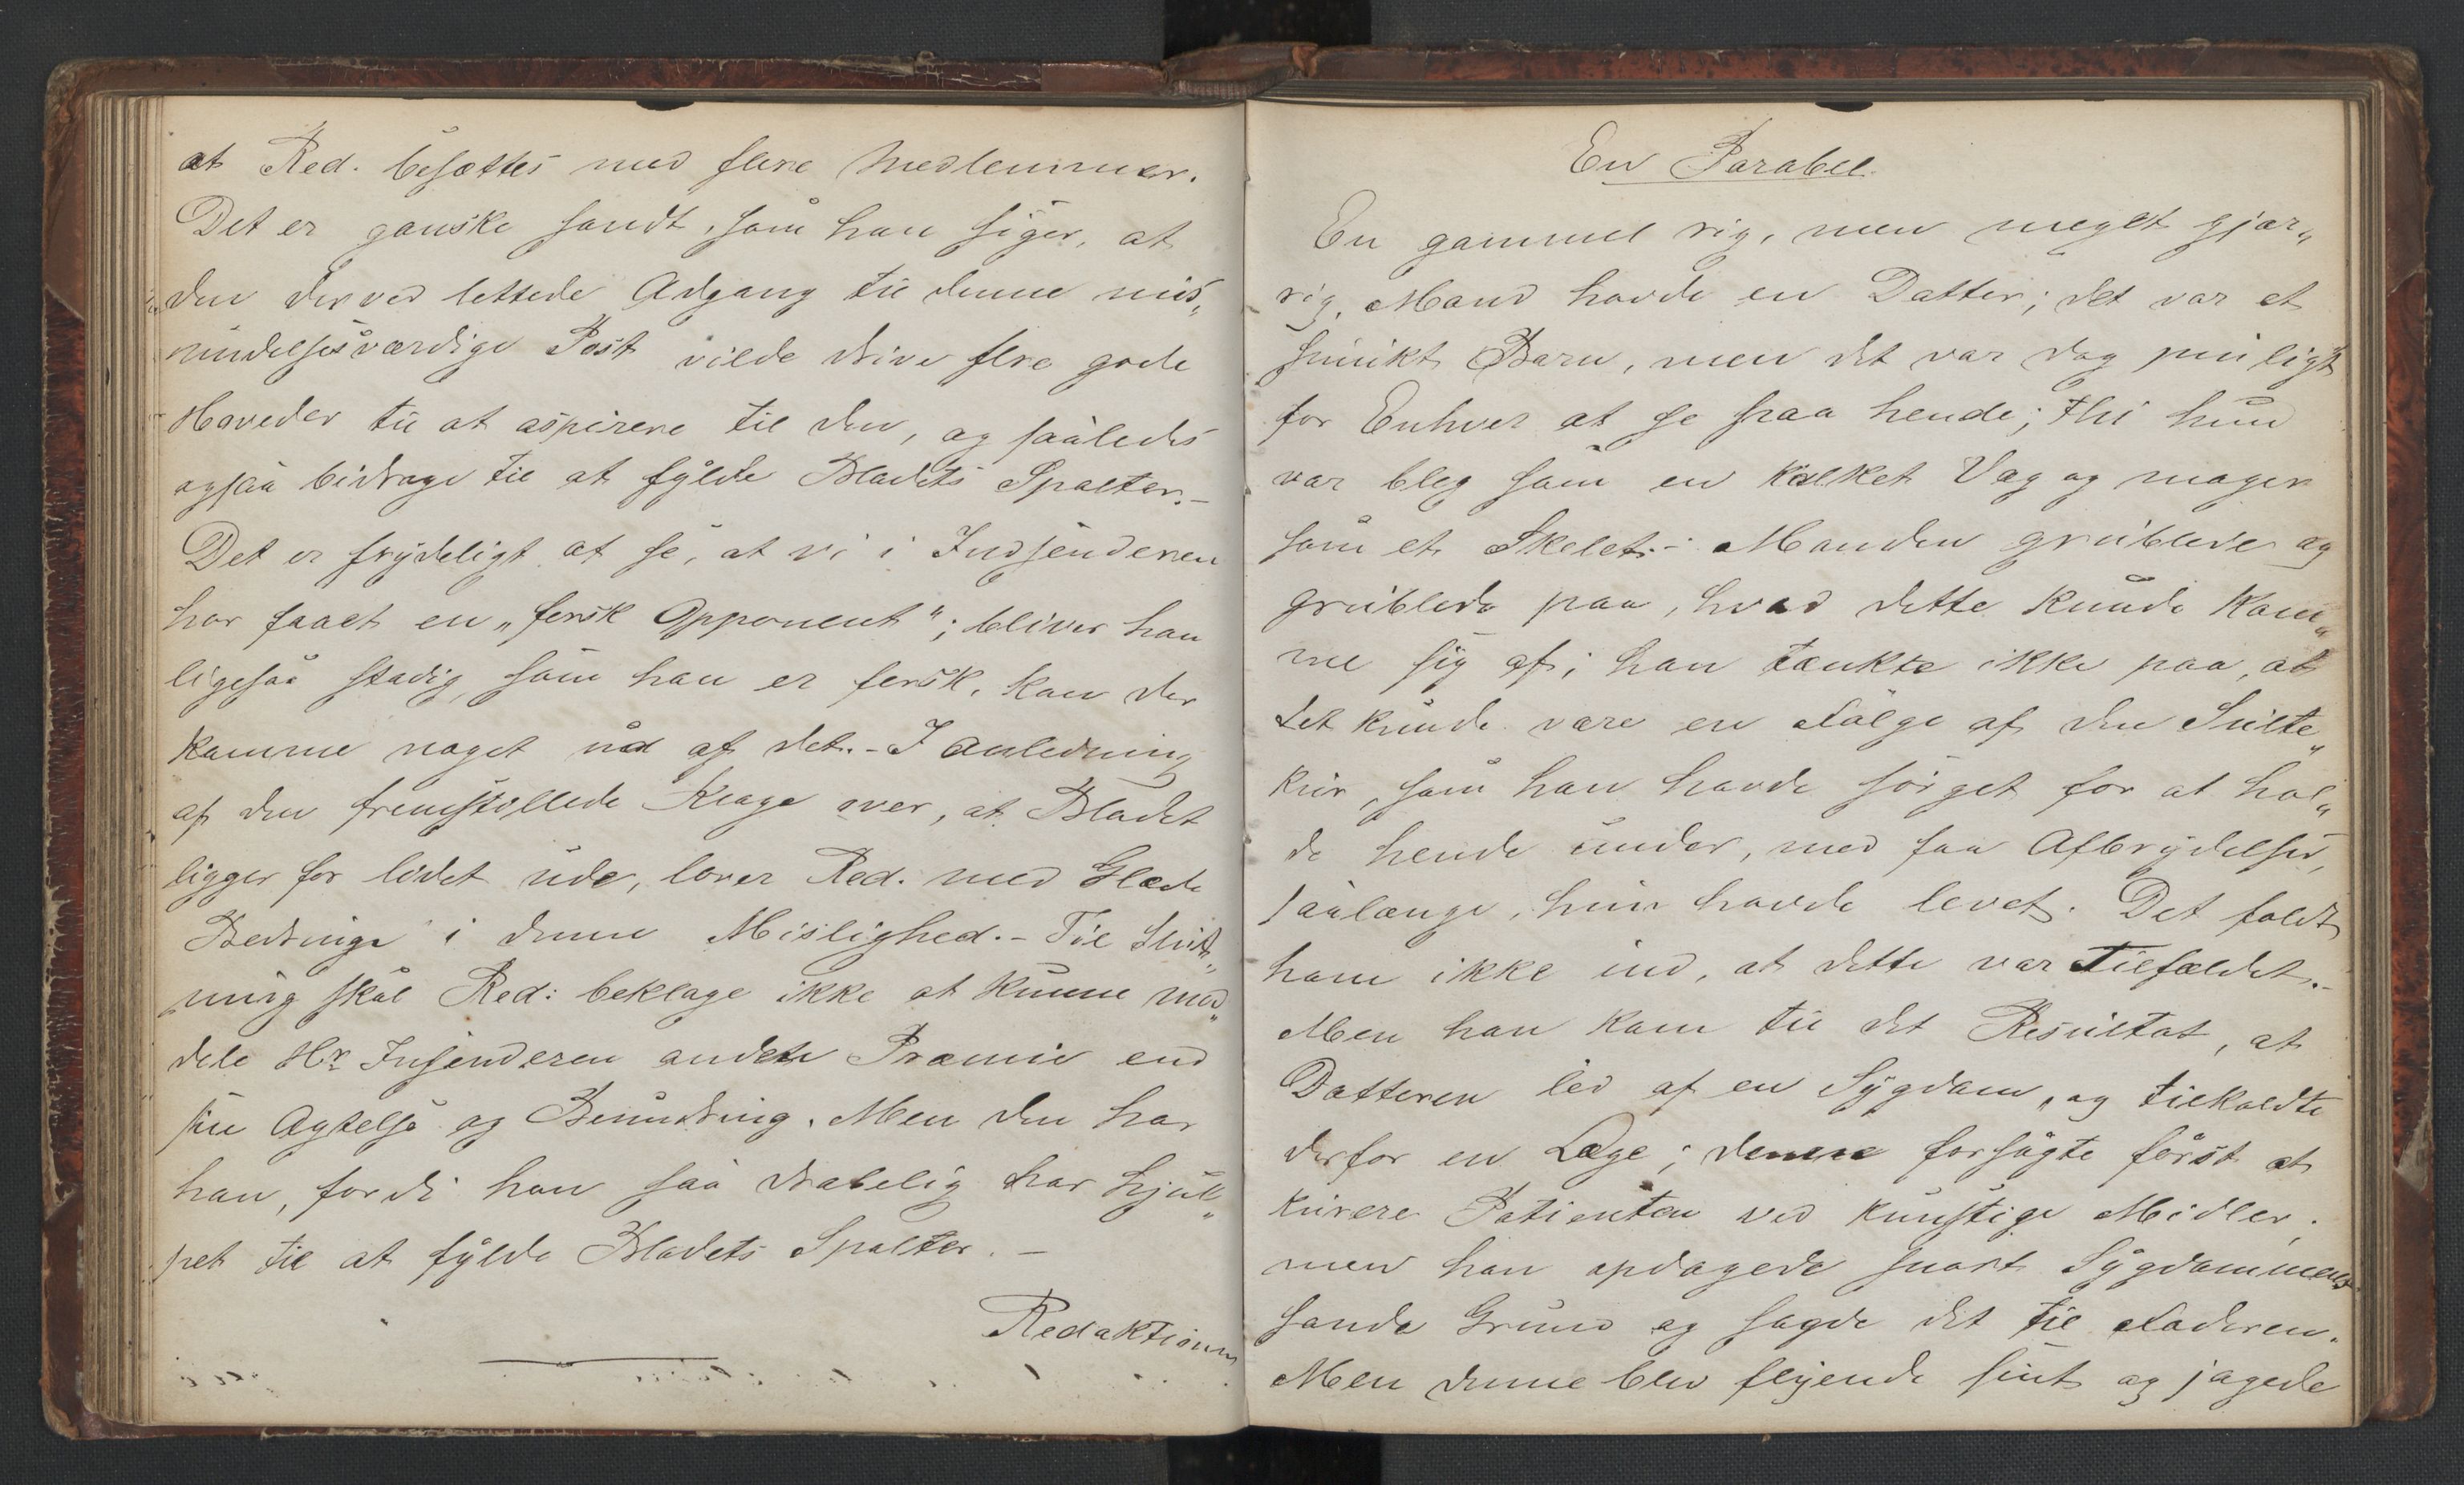 at Red. besættes med flere Medlemmer.
Det er ganske sandt, som han siger, at
den derved lettede Adgang til denne mis„
undelsesværdige Post vilde drive flere gode
Hoveder til at aspirere til den, og saaledes
ogsaa bidrage til at fylde Bladets Spalter. –
Det er frydeligt at se, at vi i Indsenderen
har faaet en „fersk Opponent“; bliver han
ligesaa stadig, som han er fersk, kan der
komme noget ud af det. – I Anledning
af den fremstillede Klage over, at Bladet
ligger for lidet ude, lover Red. med Glæde
Bedring i denne Mislighed. – Til Slut„
ning skal Red: beklage ikke at kunne med„
dele Hr Insenderen anden Præmie end
sin Agtelse og Beundring. Men den har
han, fordi han saa drabelig har hjul„
pet til at fylde Bladets Spalter. –
Redaktionen
En Parabel.
En gammel rig, men meget gjær„
rig, Mand havde en Datter; det var et
smukt Barn, men det var dog pinligt
for Enhver at se paa hende; thi hun
var bleg som en kalket Væg og mager
som et Skelet. – Manden grublede og
grublede paa, hvad dette kunde kom„
me sig af; han tænkte ikke paa, at
det kunde være en Følge af den Sulte„
kur, som han havde sørget for at hol„
de hende under, med faa Afbrydelser,
saalænge, hun havde levet. Det faldt
ham ikke ind, at dette var Tilfældet. –
Men han kom til det Resultat, at
Datteren led af en Sygdom, og tilkaldte
derfor en Læge; denne forsøgte først at
kurere Patienten ved kunstige Midler;
men han opdagede snart Sygdommens
sande Grund og sagde det til Faderen.
Men denne blev flyende sint og jagede